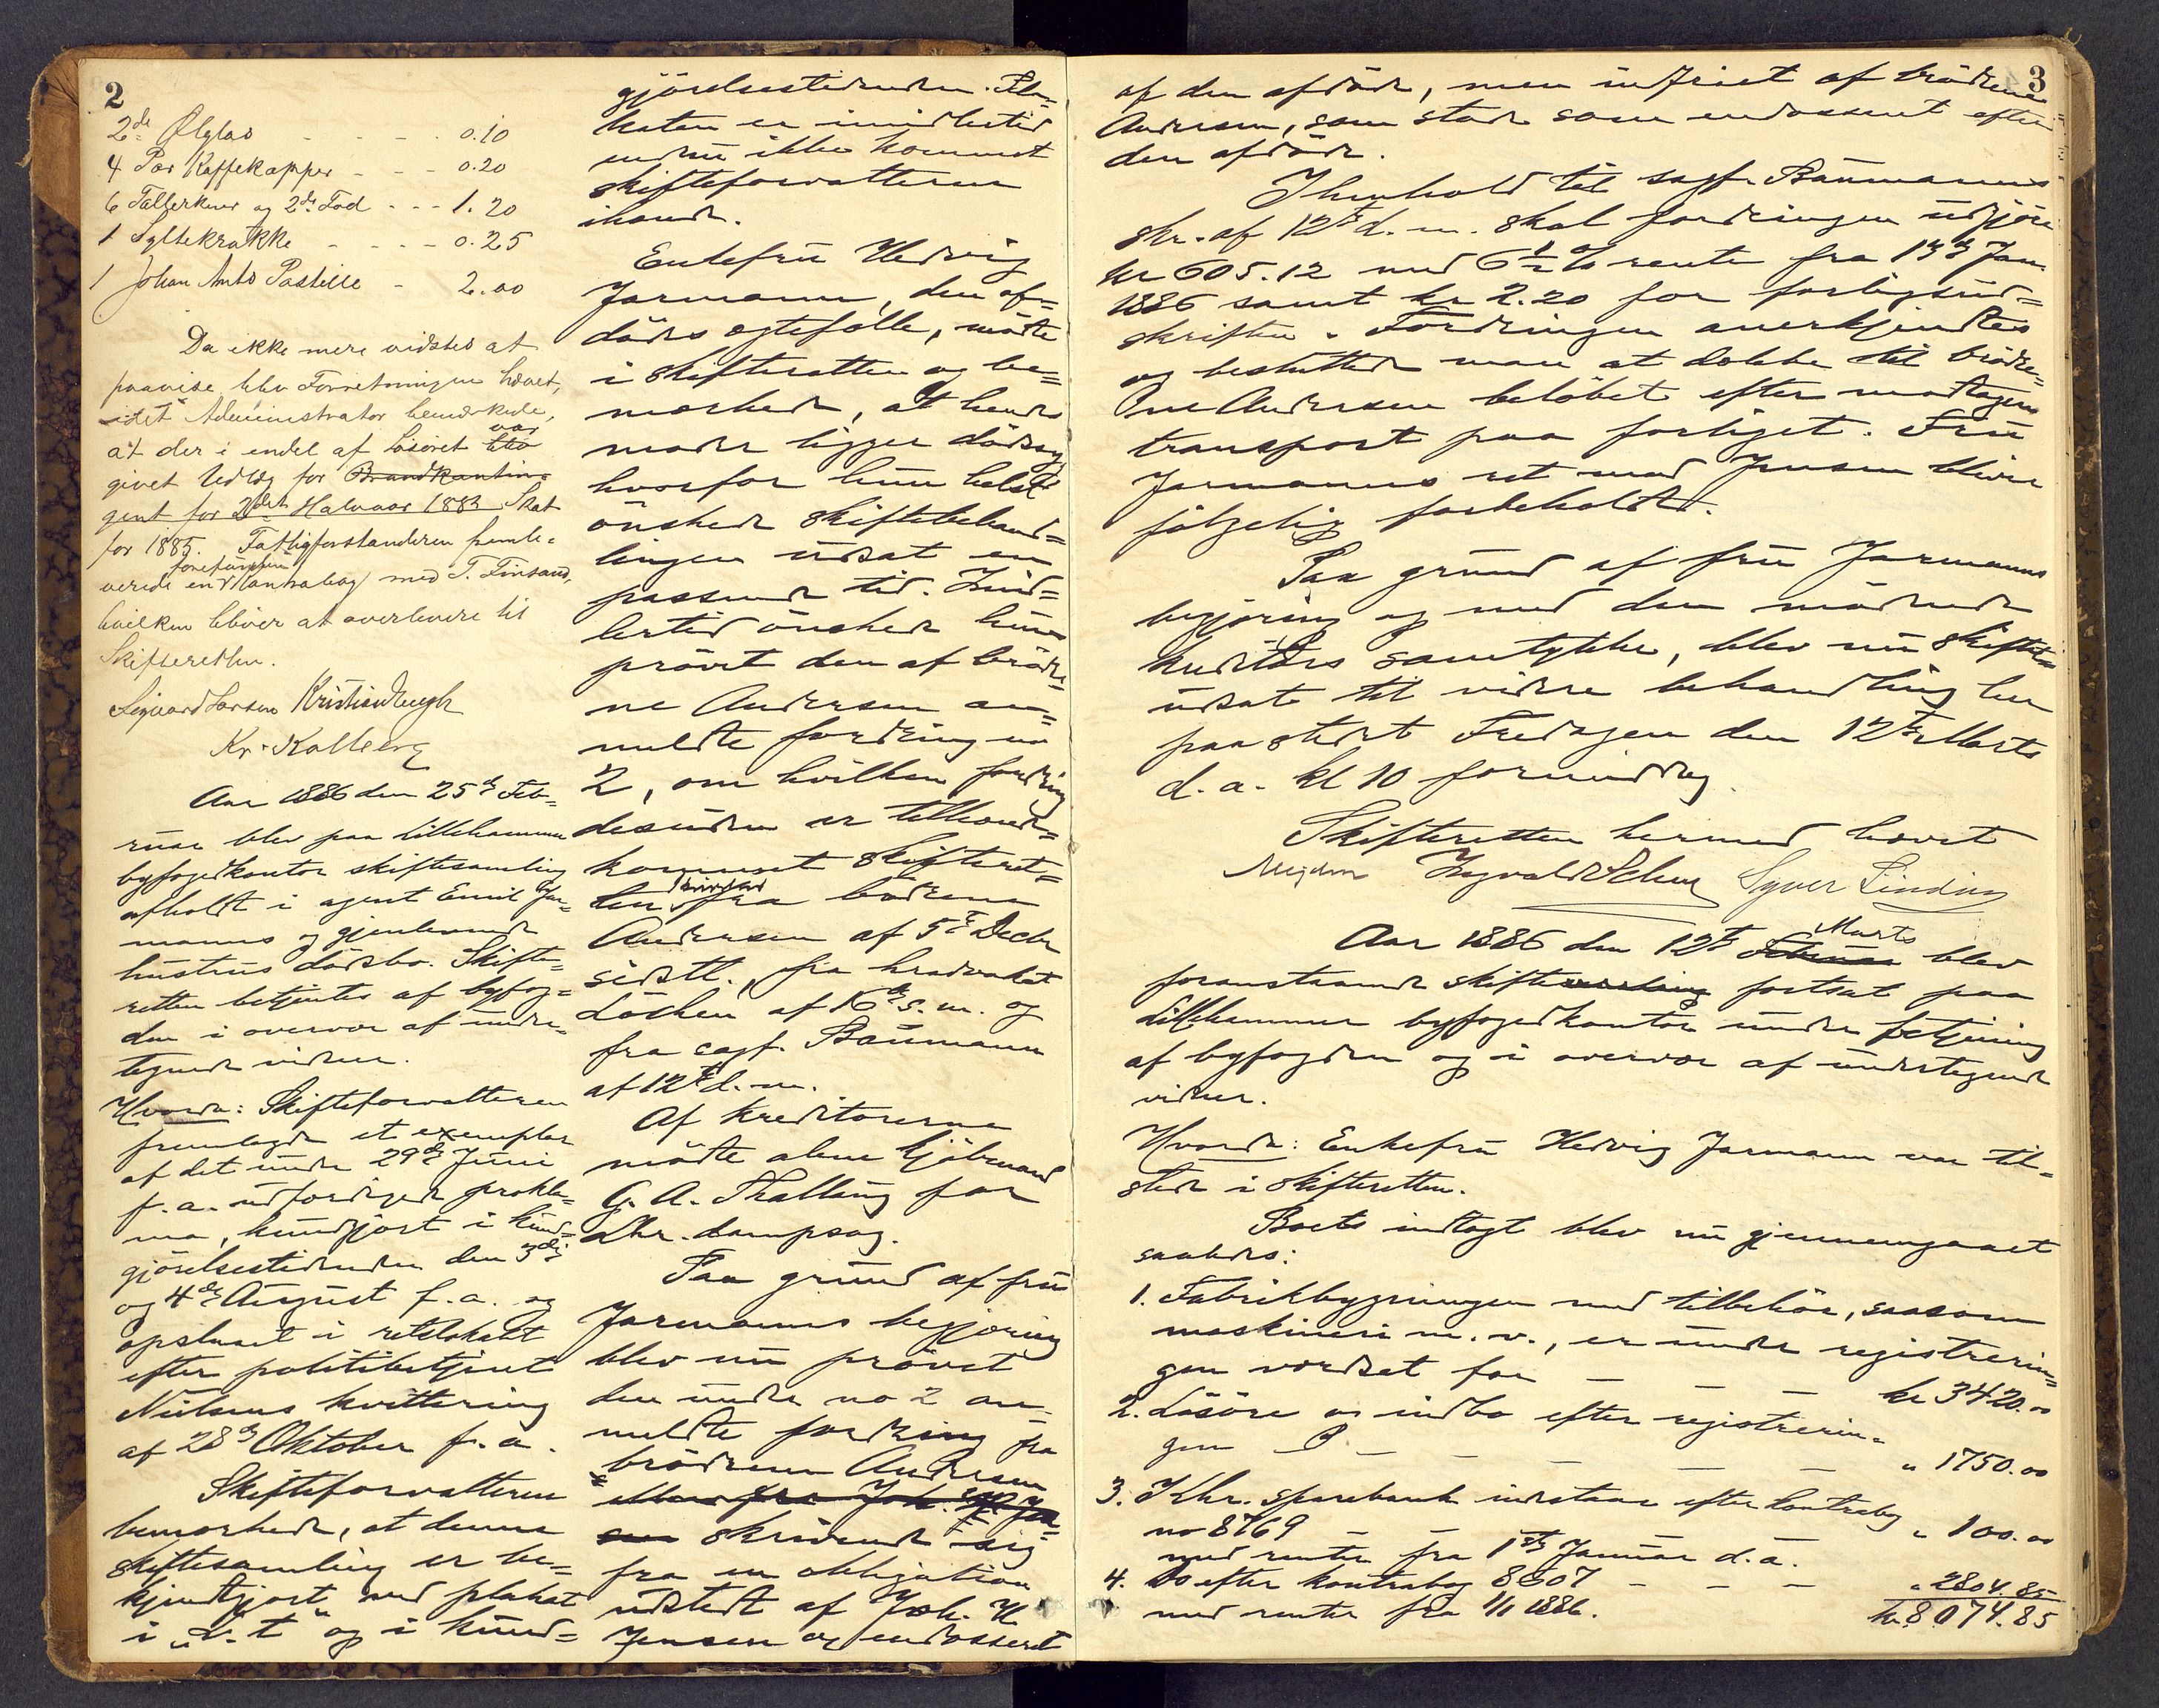 2
2de Ølglas - - - - 0.10
4 Par Kaffekopper - - - 0.20
6 Tallerkner og 2de Fad - - - 1.20
1 Syltekrukke - - - - 0.25
1 Johan Ants Postille - 2.00
Da ikke mere vidstes at
paavise blev Forretningen hævet,
idet Administrator bemærkede,
at der i endel af Løsøret blo var
givet Udlæg for Brandkontin-
gent for 2det Halvaar 1883 Skat
for 1885. Fattigforstanderen fremle-
verede en Kontrabog med T.
hvilken bliver at overlevere til
Skifteretten.
Sigvard Larsen Kristian
Kr. Kolberg
Aar 1886 den 25de Feb-
ruar blev paa Lillehammer
byfogedkontor skiftesamling
afholdt i agent Emil Jar-
manns og gjenlevende
hustrus dødsbo. Skifte-
retten betjentes af byfog-
den i overvær af under-
tegnede vidner.
Hvorda: Skifteforvalteren
fremlagde et exemplar
af det under 29de Juni
f. a. udfærdigede prokla-
ma, kundgjort i kund-
gjørelsestidenden den 3die
og 4de August f. a. og
opslaaet i retslokalt
efter politibetjent
Nielsens kvittering
af 28de Oktober f. a.
Skifteforvalteren
bemærkede, at denne
skiftesamling er be-
kjendtgjort med plakat
i „L. t“ og i kund=
gjørelsestidenden. Pla-
katen er imidlertid
endnu ikke kommet
skifteforvalteren
ihænde.
Enkefru Hedvig
Jarmann, den af=
dødes ægtefælle, mødte
i skifteretten og be=
mærkede, at hendes
moder ligger dødssyg
hvorfor hun helst
ønskede skiftebehand=
lingen udsat en
passende tid. Imid=
lertid ønskede hun
prøvet den af brødre=
ne Andersen an=
meldte fordring no
2, om hvilken fordring
desuden er tilhænde=
kommet skifteret=
ten skrivelser fra brødrene
Andersen af 5te Decbr
sidstl., fra
Løchen af 16de s. m. og
fra sagf. Baumann
af 12te d. m.
Af kreditorerne
mødte alene kjøbmand
G. A. Thalberg for
Lhr. dampsag.
Paa grund af fru
Jarmanns begjæring
blev nu prøvet
den under no 2 an-
meldte fordring fra
brødrene Andersen
skrivende sig
fra en obligation
udstedt af Joh. H
Jensen og endosseret
3
af den afdøde, men indfriet af brødrene
Andersen, som stod som endossent efter
den afdøde.
I henhold til sagf. Baumanns
skr. af 12te d. m. skal fordringen udgjøre
kr 605.12 med 6½ % rente fra 13de Jan.
1886 samt kr 2.20 for forligsud=
skriften. Fordringen anerkjendtes
og besluttede man at betale til brødre=
ne Andersen beløbet efter modtagen
transport paa forliget. Fru
Jarmanns ret mod Jensen bliver
følgelig forbeholdt.
Paa grund af fru Jarmanns
begjæring og med den mødende
kreditors samtykke, blev nu skiftet
udsat til videre behandling her
paa stedet Fredagen den 12te Marts
d. a. kl 10 formiddag.
Skifteretten hermed hævet
Mejdell Ingvald Syver Linding
Aar 1886 den 12te Februar Marts blev
foranstaaende skiftesamling fortsat paa
Lillehammer byfogedkontor under betjening
af byfogden og i overvær af undertegnede
vidner.
Hvorda: Enkefru Hedvig Jarmann var til=
stede i skifteretten.
Boets indtægt blev nu gjennemgaaet
saaledes:
1. Fabrikbygningen med tilbehør, saasom
maskineri m. v., er under registrerin=
gen vordset for - - - kr 3420.00
2. Løsøre og indbo efter registrerin=
gen - - - „ 1750.00
3. I Lhr. sparebank indestaar efter kontrabog
no 8769 „ 100.00
med renter fra 1ste Januar d. a.
4. Do efter kontrabog 8607 - - - „ 2804.85
med renter fra 1/1 1886. kr. 8074.85